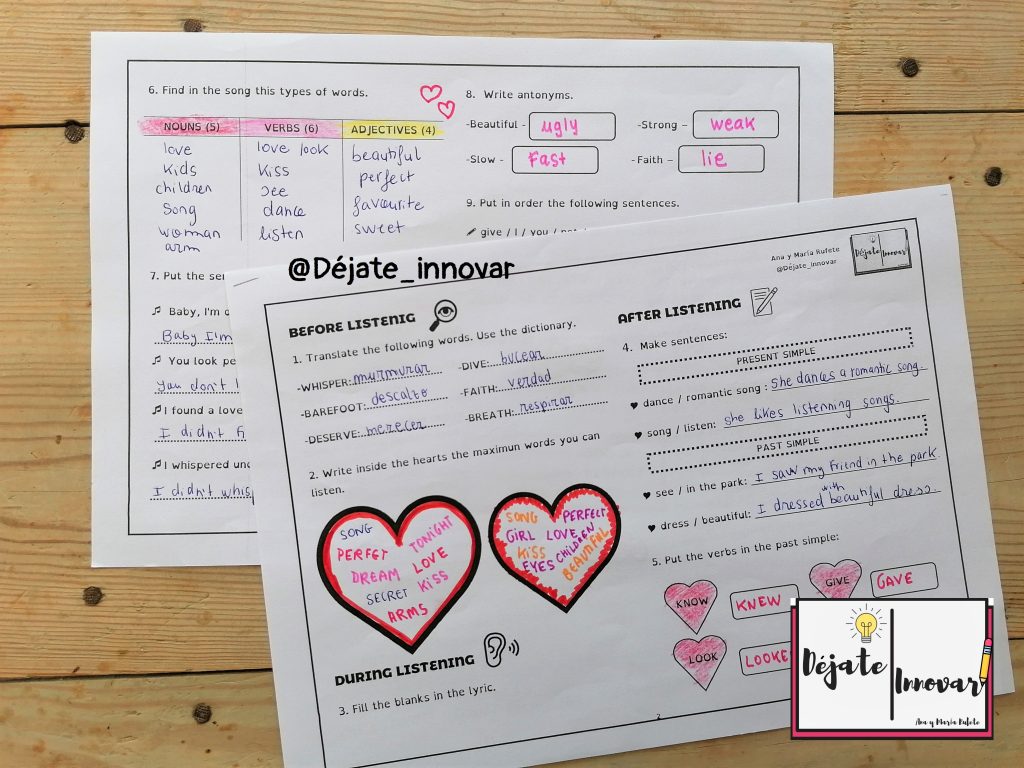 6. Find in the song this types of words.
NOUNS (5) VERBS (6) ADJECTIVES (4)
love love look beautiful
kids kiss perfect
children see favourite
song dance sweet
woman listen
arm
7. Put the sen
♫ Baby, I'm
Baby I'm
♫ You look pe
You don't l
♫ I found a love
I didn't f
♫ I whispered und
I didn't whisp
8. Write antonyms.
-Beautiful - ugly -Strong - weak
-Slow - Fast -Faith - lie
9. Put in order the following sentences.
give / I / you /
@Déjate_innovar
Ana y María Rufete
@Déjate_innovar
Déjate Innovar
BEFORE LISTENIG
1. Translate the following words. Use the dictionary.
-WHISPER: murmurar -DIVE: bucear
-BAREFOOT: descalto -FAITH: verdad
-DESERVE: merecer -BREATH: respirar
2. Write inside the hearts the maximun words you can
listen.
SONG
TONIGHT
PERFET
LOVE
DREAM
KISS
SECRET
ARMS
SONG PERFECT
GIRL LOVE
KISS CHILDREN
EYES BEAUTIFUL
DURING LISTENING
3. Fill the blanks in the lyric.
AFTER LISTENING
4. Make sentences:
PRESENT SIMPLE
♥ dance / romantic song : She dances a romantic song.
♥ song / listen: she likes listenning songs.
PAST SIMPLE
♥ see / in the park: I saw my friend in the park.
with
♥ dress / beautiful: I dressed beautiful dress.
5. Put the verbs in the past simple:
KNOW KNEW GIVE GAVE
LOOK LOOKE
2
Déjate Innovar
Ana y María Rufete